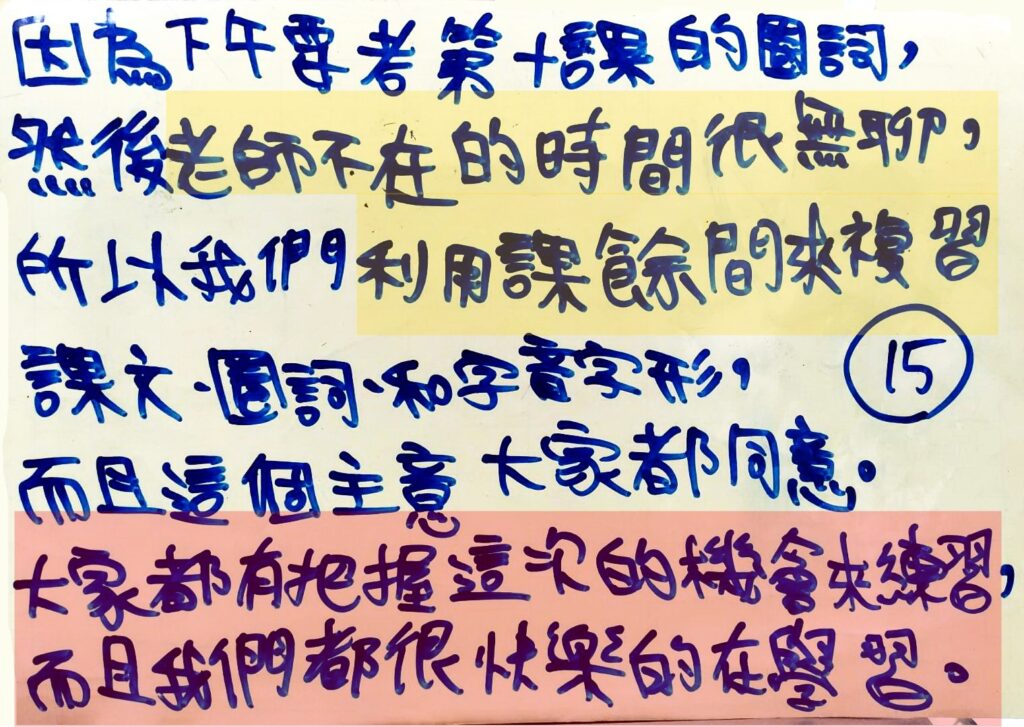 因為下午要考第十課的圈詞，
然後老師不在的時間很無聊，
所以我們利用課餘間來複習
課文、圈詞、和字音字形，
15
而且這個主意大家都同意。
大家都有把握這次的機會來練習，
而且我們都很快樂的在學習。